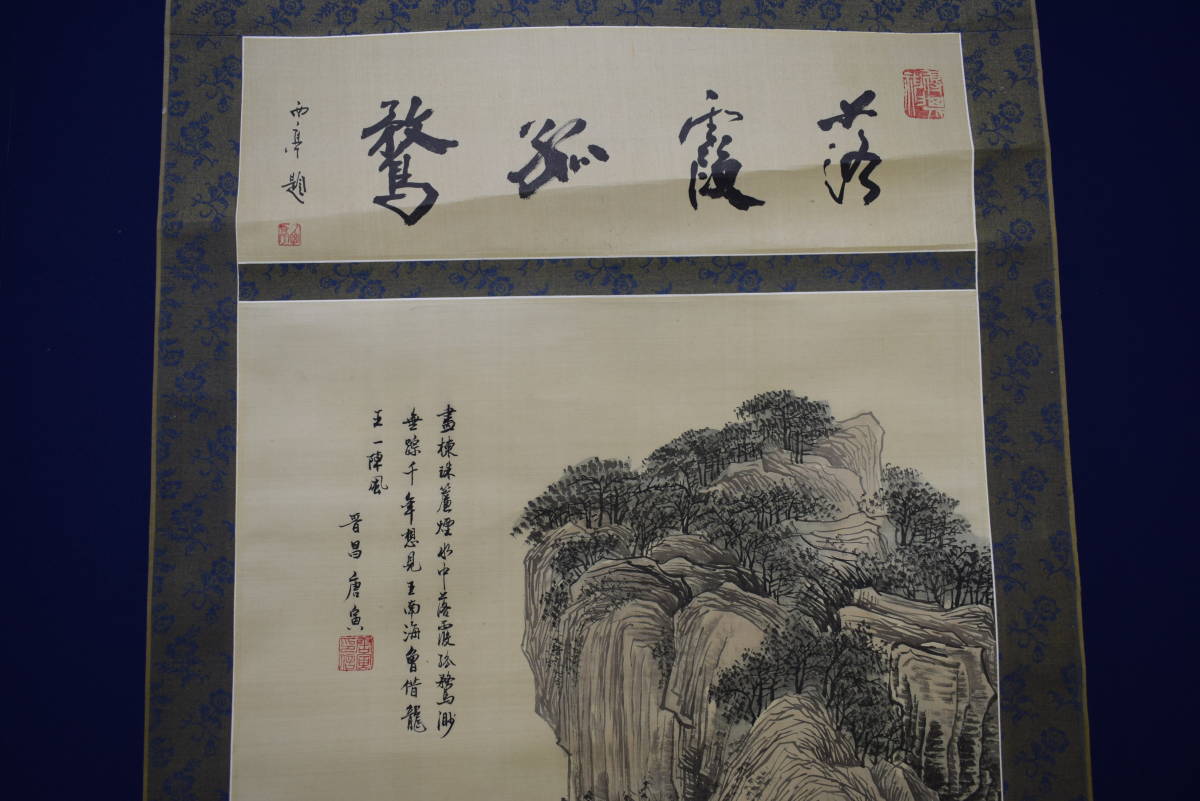 落霞孤鶩
西亭題
畫棟珠簾煙水中落霞孤鶩渺
無踪千年想見王南海曾借龍
王一陣風
晉昌唐寅